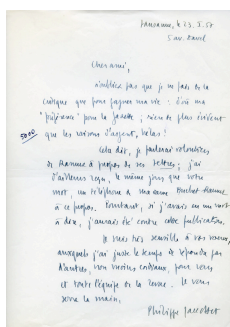 Lausanne, le 23.I.58
5 av. Davel
Cher ami,
n'oubliez pas que je ne fais de la
critique que pour gagner ma vie : d'où ma
"préférence" pour la Gazette ; rien de plus évident
que les raisons d'argent, hélas !
5000
Cela dit, je parlerai volontiers
de Hamme à propos de ses lettres ; j'ai
d'ailleurs reçu, le même jour que votre
mot, un téléphone de Madame
à ce propos. Pourtant, si j'avais eu un mot
à dire, j'aurais été contre cette publication.
Je suis très sensible à vos vœux,
auxquels j'ai juste le temps de répondre par
d'autres, non moins cordiaux, pour vous
et toute l'équipe de la revue. Je vous
serre la main,
Philippe Jaccottet